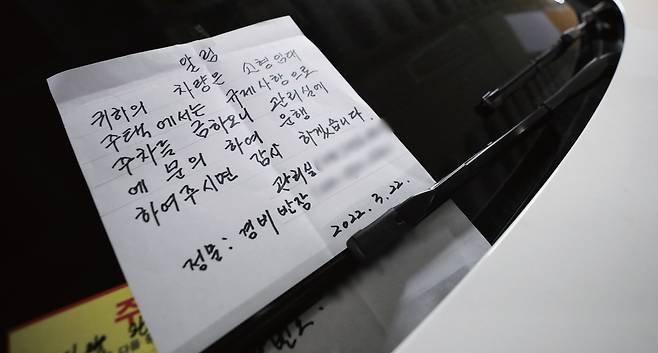 알림
귀하의 차량은 신형임대
주택에서는 규제사항으로
주차를 금하오니 관리실에
에 문의 하여 운행
하여주시면 감사 하겠습니다.
관리실
정문: 경비반장
2022. 3. 22.